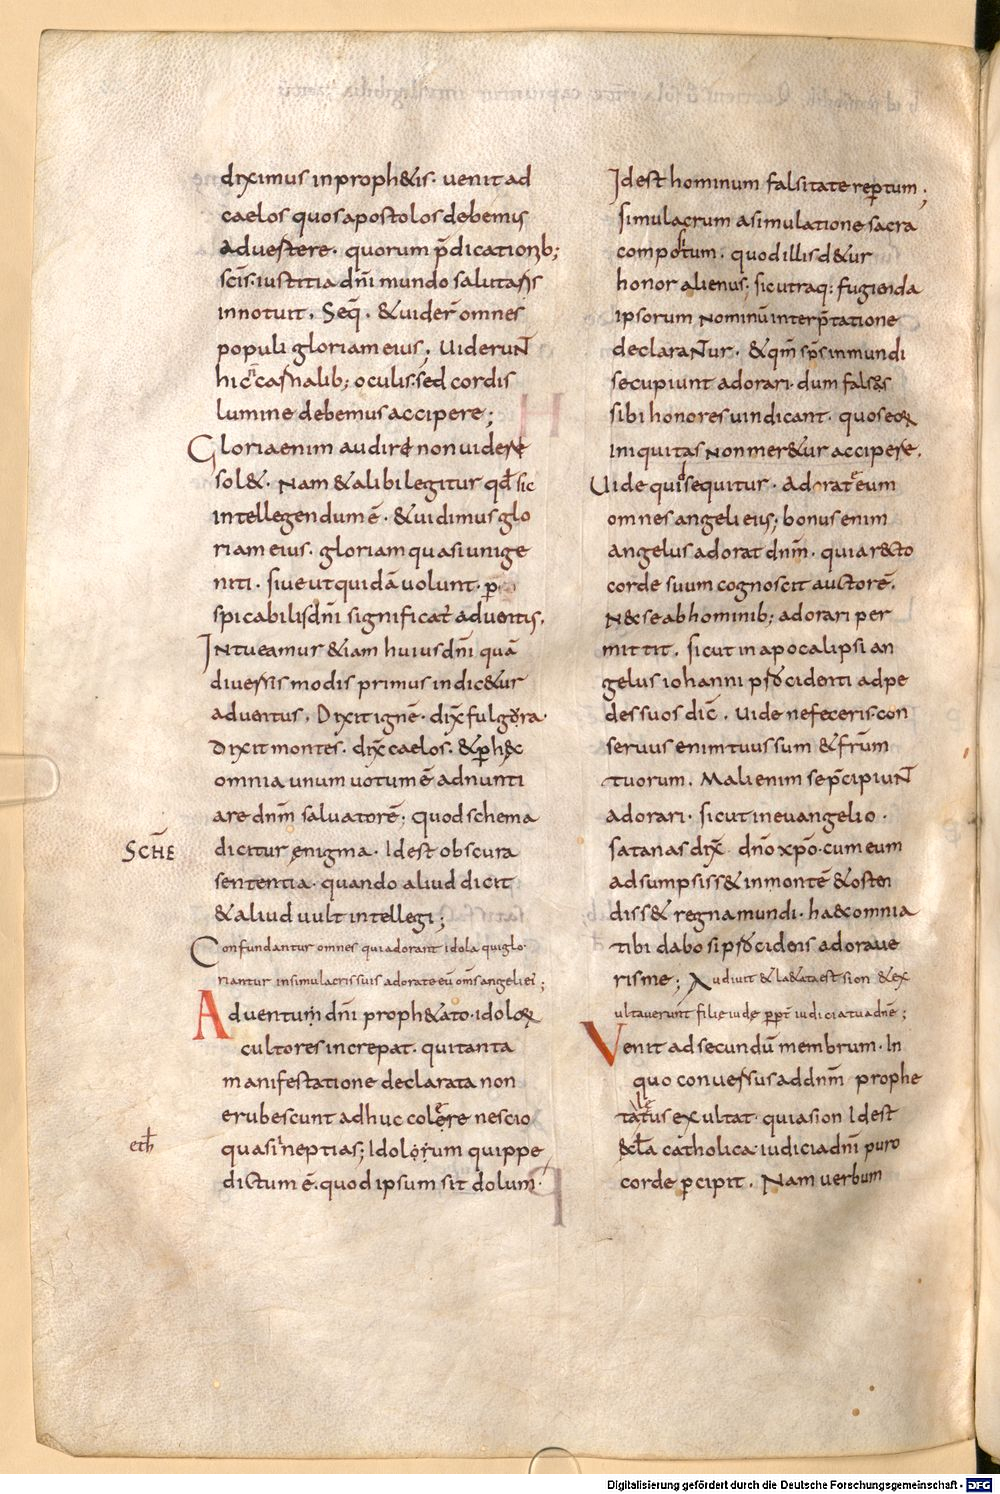 diximus in proph&is· uenit ad
caelos quos apostolos debemus
aduertere· quorum p̄dicationib;
sc̄is· iustitia dn̄i mundo salutaris
innotuit. Seq̄. &uider̄ omnes
populi gloriam eius; UideruNT
hic n̄ carnalib; oculis· sed cordis
lumine debemus accipere;
Gloria enim audire non uidere
sol&· Nam &alibi legitur qđ sic
intellegendum ē· &uidimus glo
riam eius· gloriam quasi unige
niti· siue ut quidā uolunt·
spicabilis dn̄i significat aduentus.
INtueamur &iam huius dn̄i quā
diuersis modis primus indic&ur
aduentus. Dixit ignē· dix̄ fulgora·
Dixit montes· dix̄ caelos· &ꝑ hęc
omnia unum uotum ē adnunti
are dnm̄ saluatorē; Quod schema
SCHĒ
dicitur enigma· Id est obscura
sententia· quando aliud dicit
&aliud uult intellegi;
Confundantur omnes qui adorant idola qui glo·
riantur in simulacris suis adorate eū oms̄ angeli ei';
Aduentum dn̄i proph&ato· idoloꝝ
cultores increpat· qui tanta
manifestatione declarata non
erubescunt adhuc colere nescio
eth̄
quas ineptias; Idolorum quippe
dictum ē· quod ipsum sit dolum·
Id est hominum falsitate reꝑtum;
simulacrum a simulatione sacra
compotum· quod illis d&ur
honor alienus; sic utraq: fugienda
ipsorum Nominū interp̄tatione
declaraNTur· &qm̄ sp̄s inmundi
se cupiunt adorari· dum falsos
sibi honores uindicant· quos eoꝝ
iniquitas Non mer&ur accipere.
Uide quid sequitur· Adorate eum
omnes angeli eius; bonus enim
angelus adorat dnm̄· quia recto
corde suum cognoscit auctorē.
N& se ab hominib; adorari per
mittit. Sicut in apocalipsi an
gelus iohanni p̱cidenti ad pe
des suos dic̄. Uide ne feceris· con
seruus enim tuus sum & fr̄um
tuorum. Mali enim se p̄cipiuNT
adorari· sicut in euangelio·
satanas dix̄ dn̄o xp̄o· cum eum
adsumpsiss& in montē &osten
diss& regna mundi· haec omnia
tibi dabo si procidens adoraue
ris me; Audiuit &la&ata est sion &ex
ultauerunt filie iude ꝓpt̄ iudicia tua dn̄e;
Venit ad secundū membrum· In
quo conuersus ad dnm̄ prophe
tatus exultat· quia sion Id est
&cl̄a catholica· iudicia dn̄i puro
corde ꝑcipit. Nam uerbum
Digitalisierung gefördert durch die Deutsche Forschungsgemeinschaft - DFG